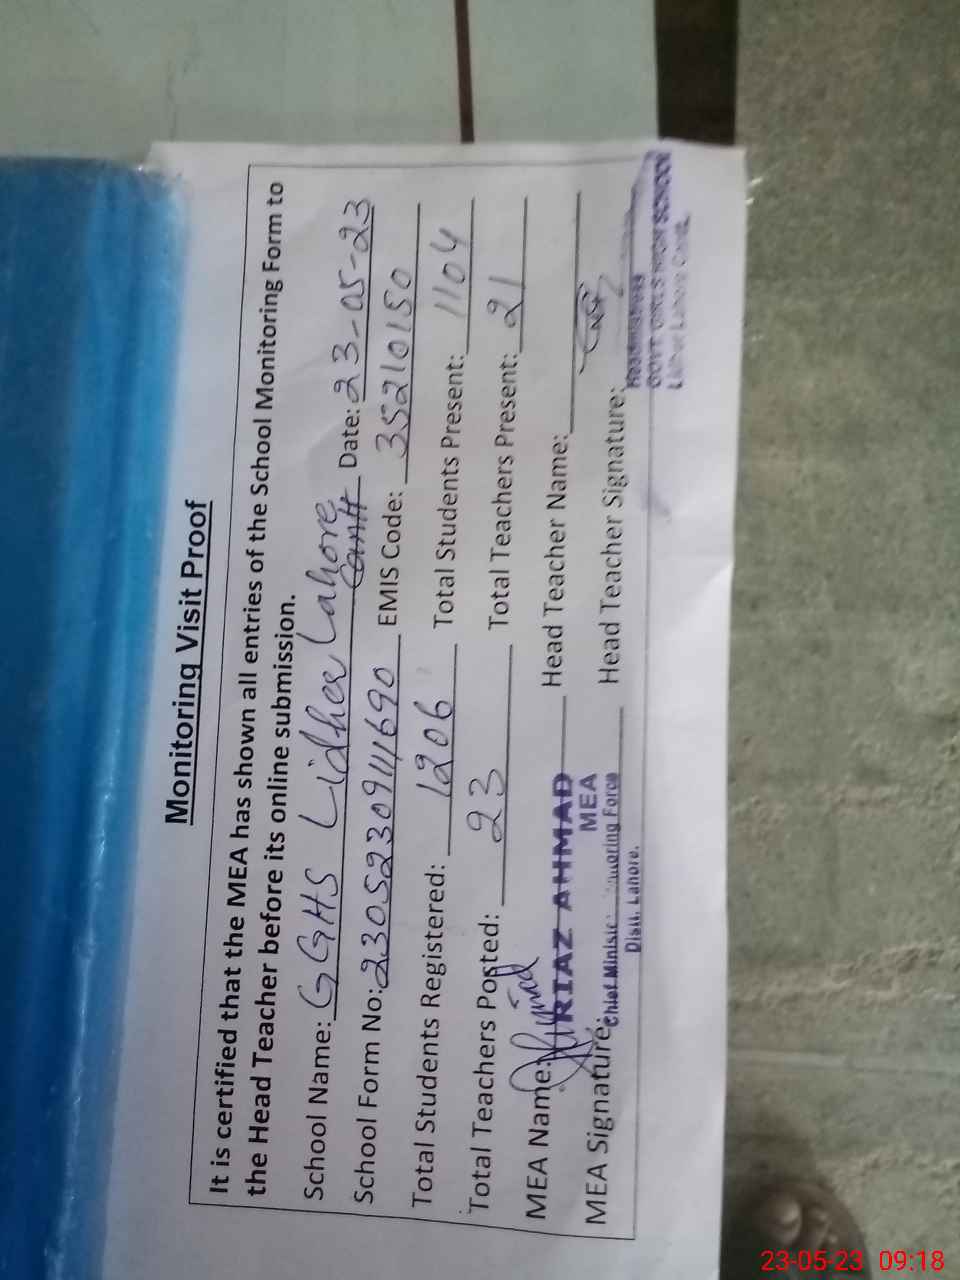 Monitoring Visit Proof
It is certified that the MEA has shown all entries of the School Monitoring Form to
the Head Teacher before its online submission.
School Name: GGHS Lidher Lahore Cantt Date: 23-05-23
School Form No: 23052309111690 EMIS Code: 35210150
Total Students Registered: 1206 Total Students Present: 1104
Total Teachers Posted: 23 Total Teachers Present: 21
MEA Name: RIAZ AHMAD Head Teacher Name:
MEA
MEA Signature: Head Teacher Signature:
Chief Minister Monitoring Force
Distt. Lahore.
Headmistress
GOVT GIRLS HIGH SCHOOL
Lidher Lahore Cantt.
23-05-23 09:18